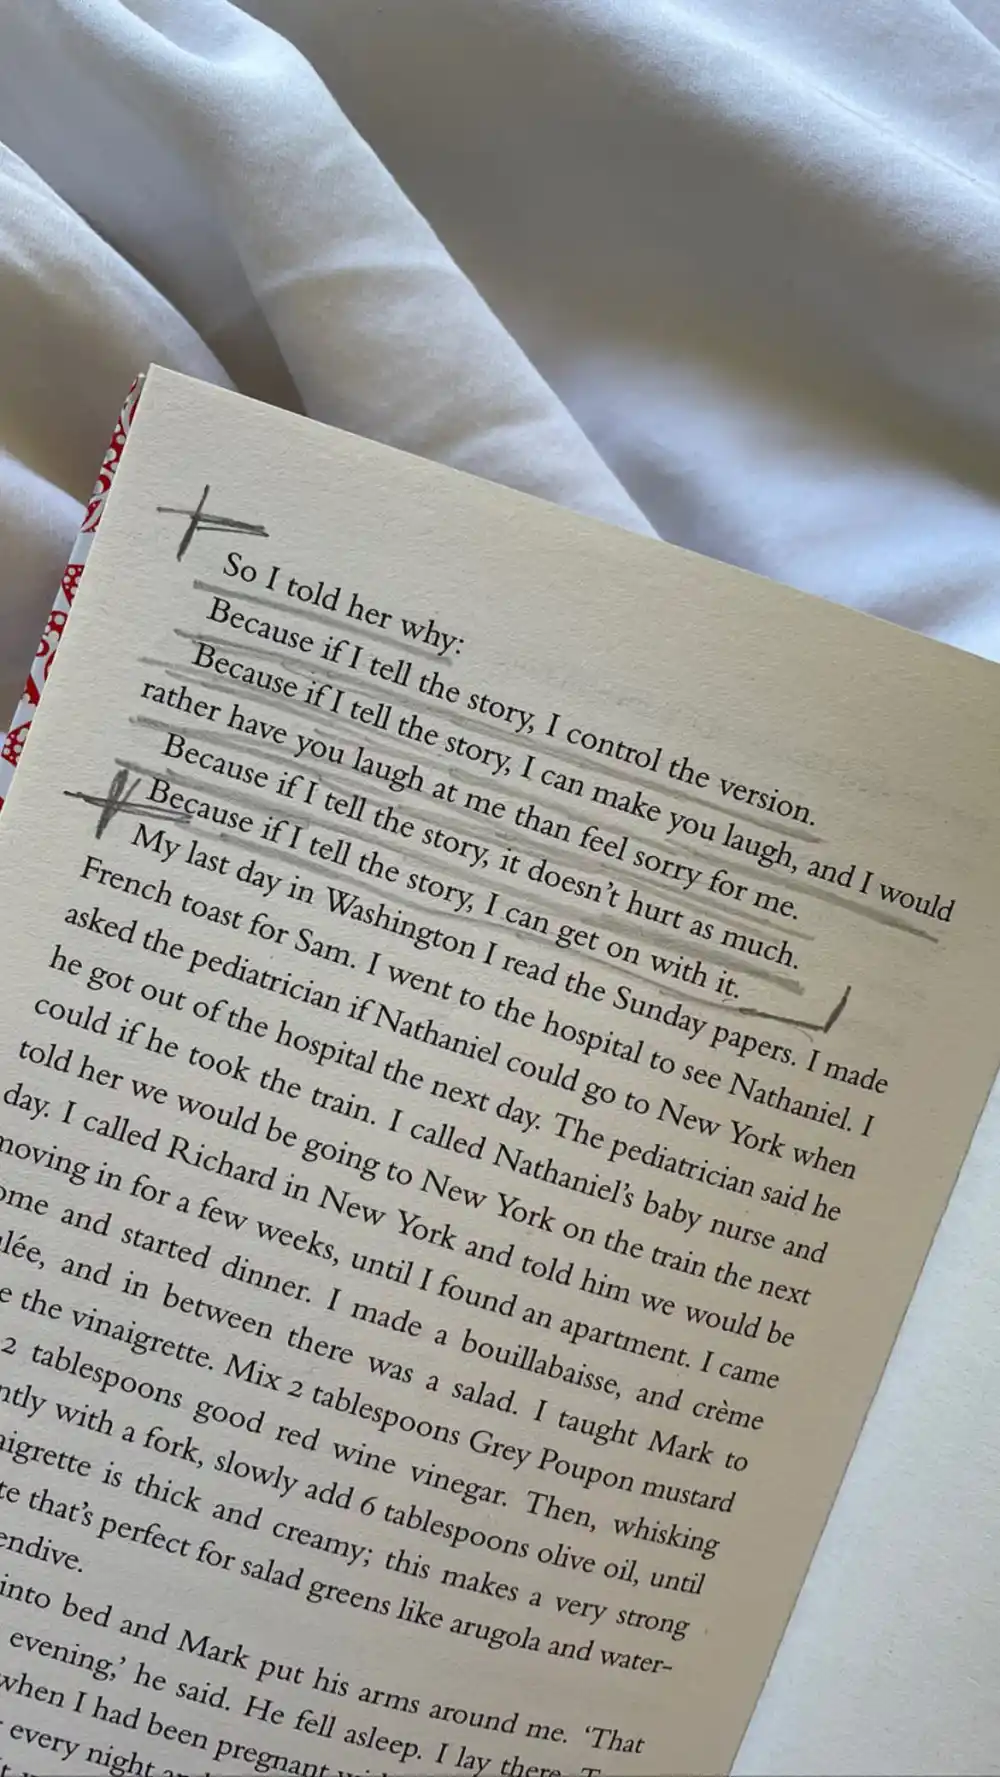 So I told her why:
Because if I tell the story, I control the version.
Because if I tell the story, I can make you laugh, and I would
rather have you laugh at me than feel sorry for me.
Because if I tell the story, it doesn't hurt as much.
Because if I tell the story, I can get on with it.
My last day in Washington I read the Sunday papers. I made
French toast for Sam. I went to the hospital to see Nathaniel. I
asked the pediatrician if Nathaniel could go to New York when
he got out of the hospital the next day. The pediatrician said he
could if he took the train. I called Nathaniel's baby nurse and
told her we would be going to New York on the train the next
day. I called Richard in New York and told him we would be
moving in for a few weeks, until I found an apartment. I came
and started dinner. I made a bouillabaisse, and crème
and in between there was a salad. I taught Mark to
the vinaigrette. Mix 2 tablespoons Grey Poupon mustard
2 tablespoons good red wine vinegar. Then, whisking
with a fork, slowly add 6 tablespoons olive oil, until
is thick and creamy; this makes a very strong
that's perfect for salad greens like arugola and water-
endive.
into bed and Mark put his arms around me. 'That
evening,' he said. He fell asleep. I lay there.
when I had been pregnant
every night